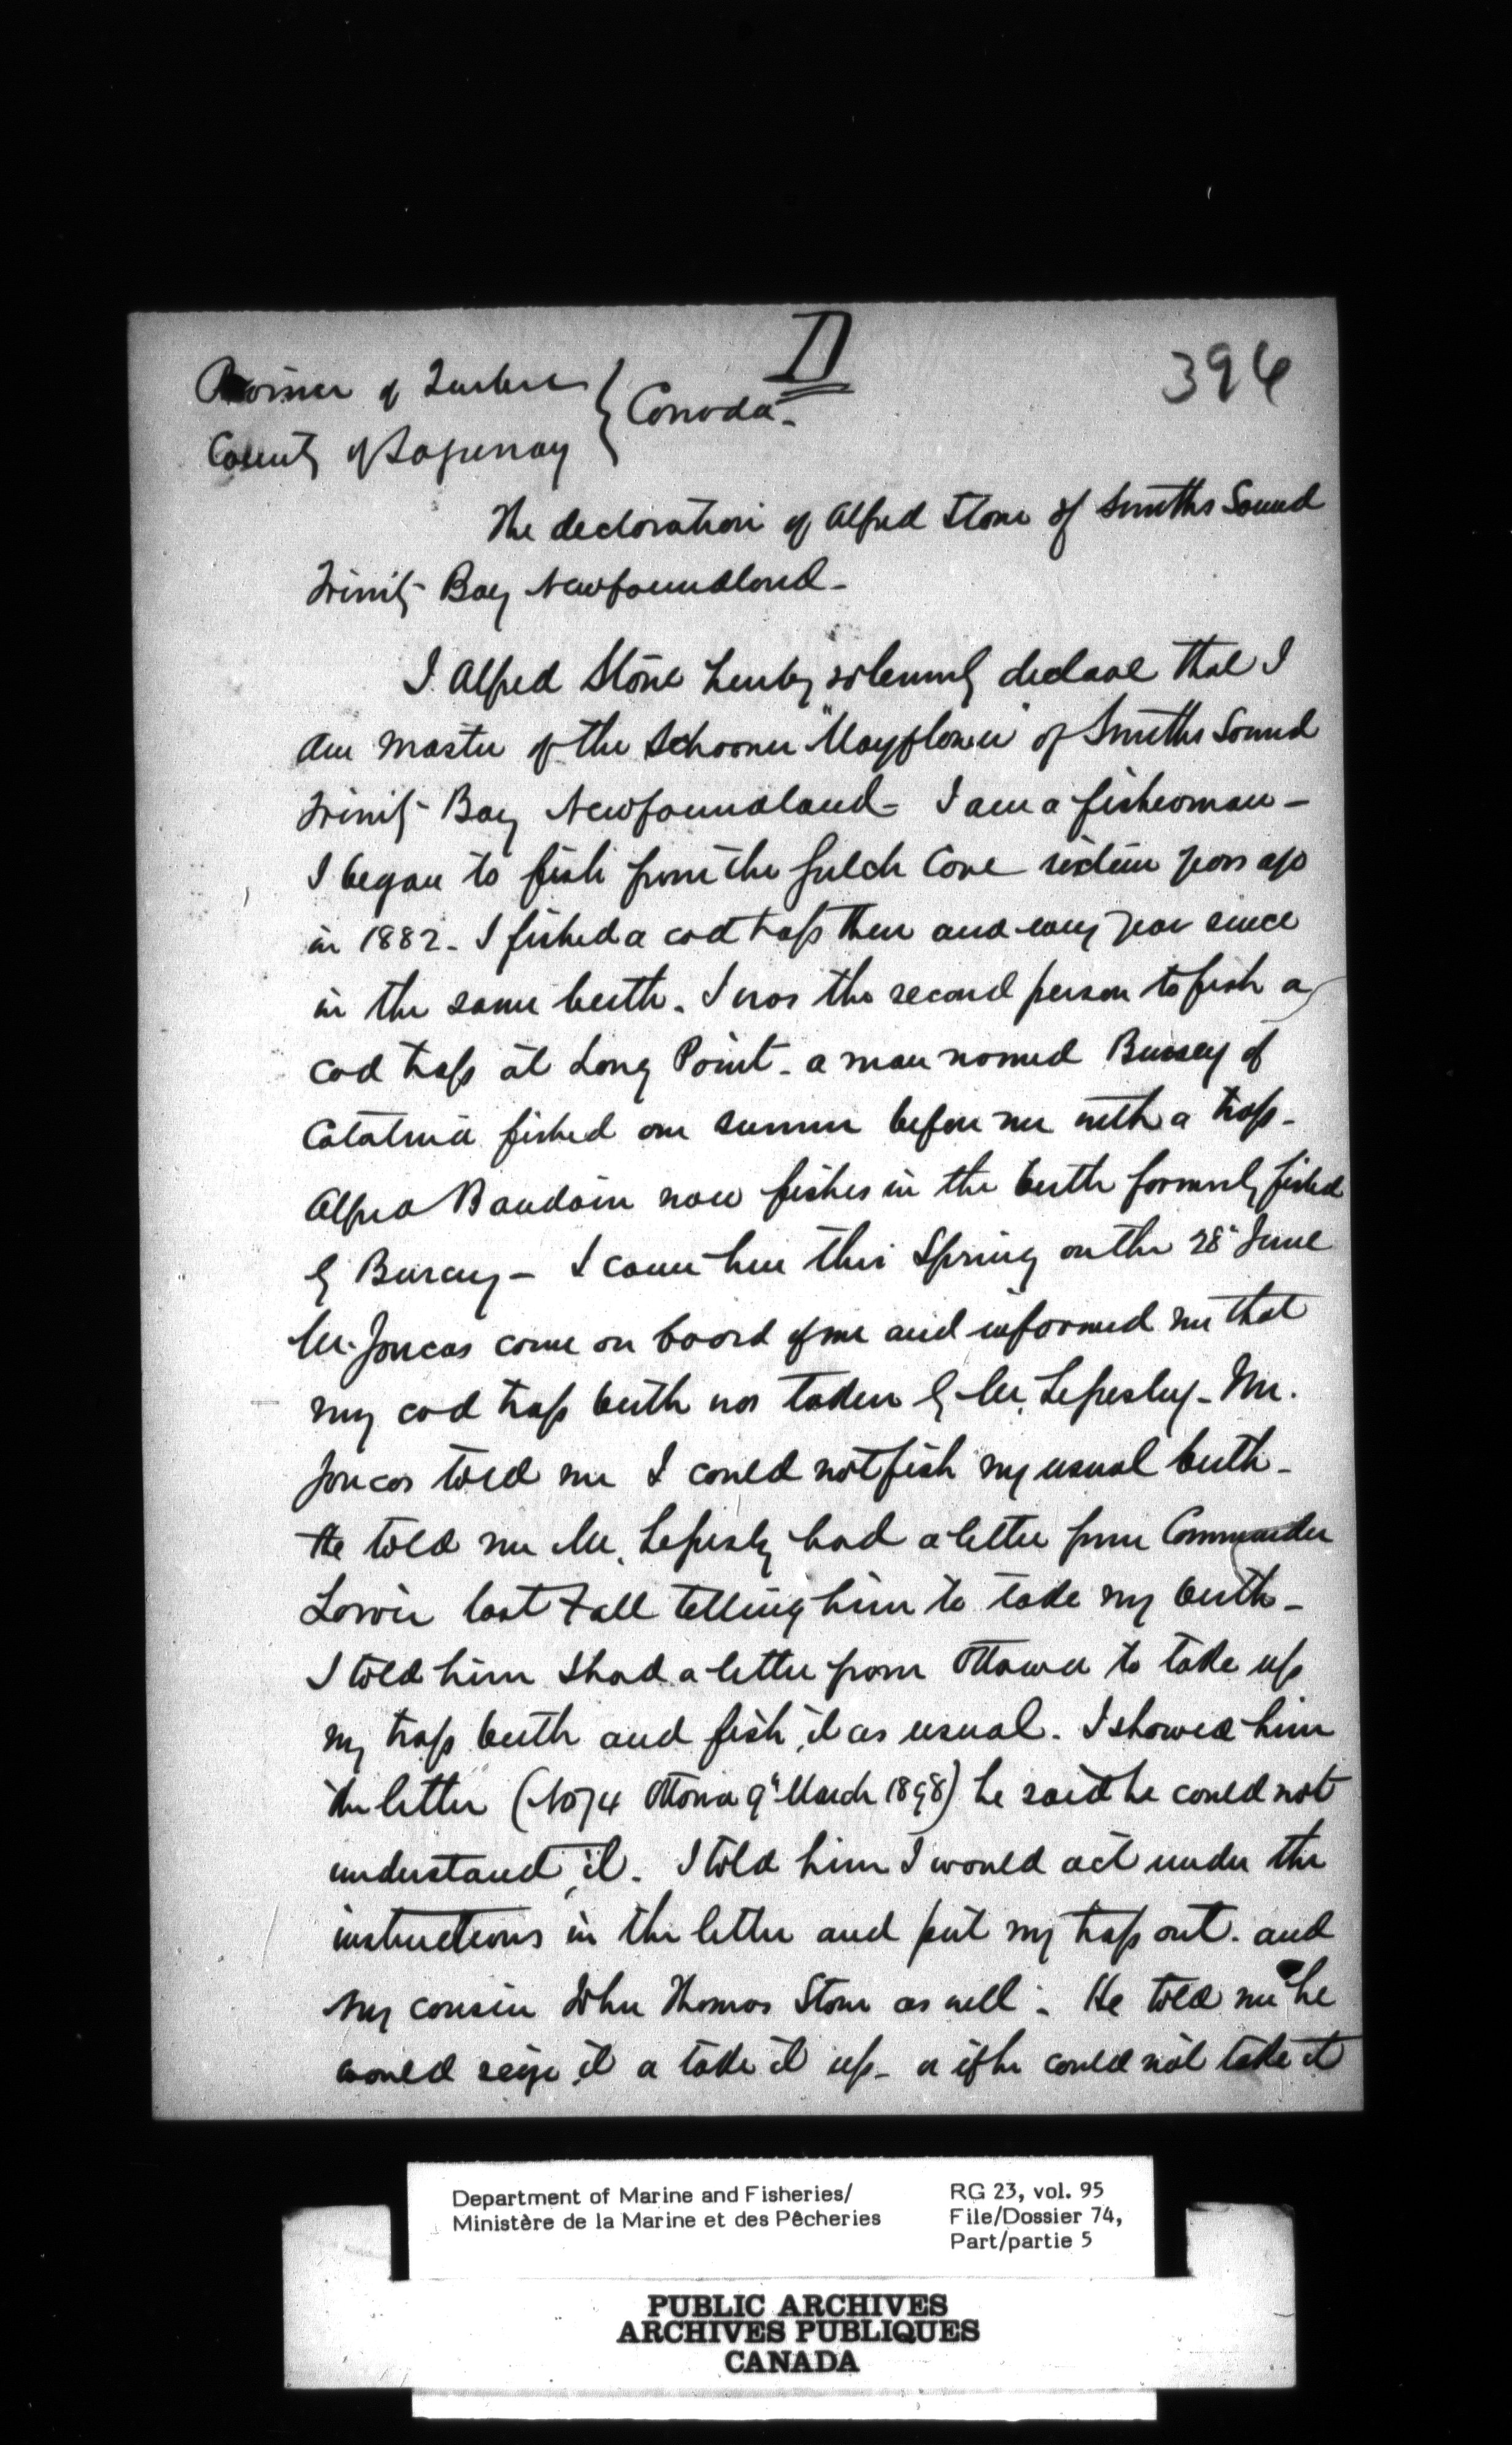 D
396
Province of Quebec
County of Saguenay } Canada-
The declaration of Alfred Stone of Smiths Sound
Trinity Bay Newfoundland-
I Alfred Stone hereby solemnly declare that I
am master of the Schooner "Mayflower" of Smiths Sound
Trinity Bay Newfoundland- I am a fisherman-
I began to fish from the Gulch Cove sixteen years ago
in 1882- I fished a cod trap then and every year since
in the same berth. I was the second person to fish a
cod trap at Long Point- a man named Bursey of
Catalina fished one summer before me with a trap-
Alfred Baudoin now fishes in the berth formerly fished
by Bursey- I came here this Spring on the 28" June
Mr. Joncas came on board of me and informed me that
my cod trap berth was taken by Mr. Lepresley- Mr.
Joncas told me I could not fish my usual berth-
He told me Mr. Lepresly had a letter from Commander
last Fall telling him to take my berth-
I told him I had a letter from Ottawa to take up
my trap berth and fish it as usual. I showed him
the letter (No 74 Ottawa 9" March 1898) he said he could not
understand it. I told him I would act under the
instructions in the letter and put my trap out. and
my cousin John Thomas Stone as well. He told me he
would seize it or take it up- or if he could not take it
Department of Marine and Fisheries/
Ministère de la Marine et des Pêcheries
RG 23, vol. 95
File/Dossier 74,
Part/partie 5
PUBLIC ARCHIVES
ARCHIVES PUBLIQUES
CANADA